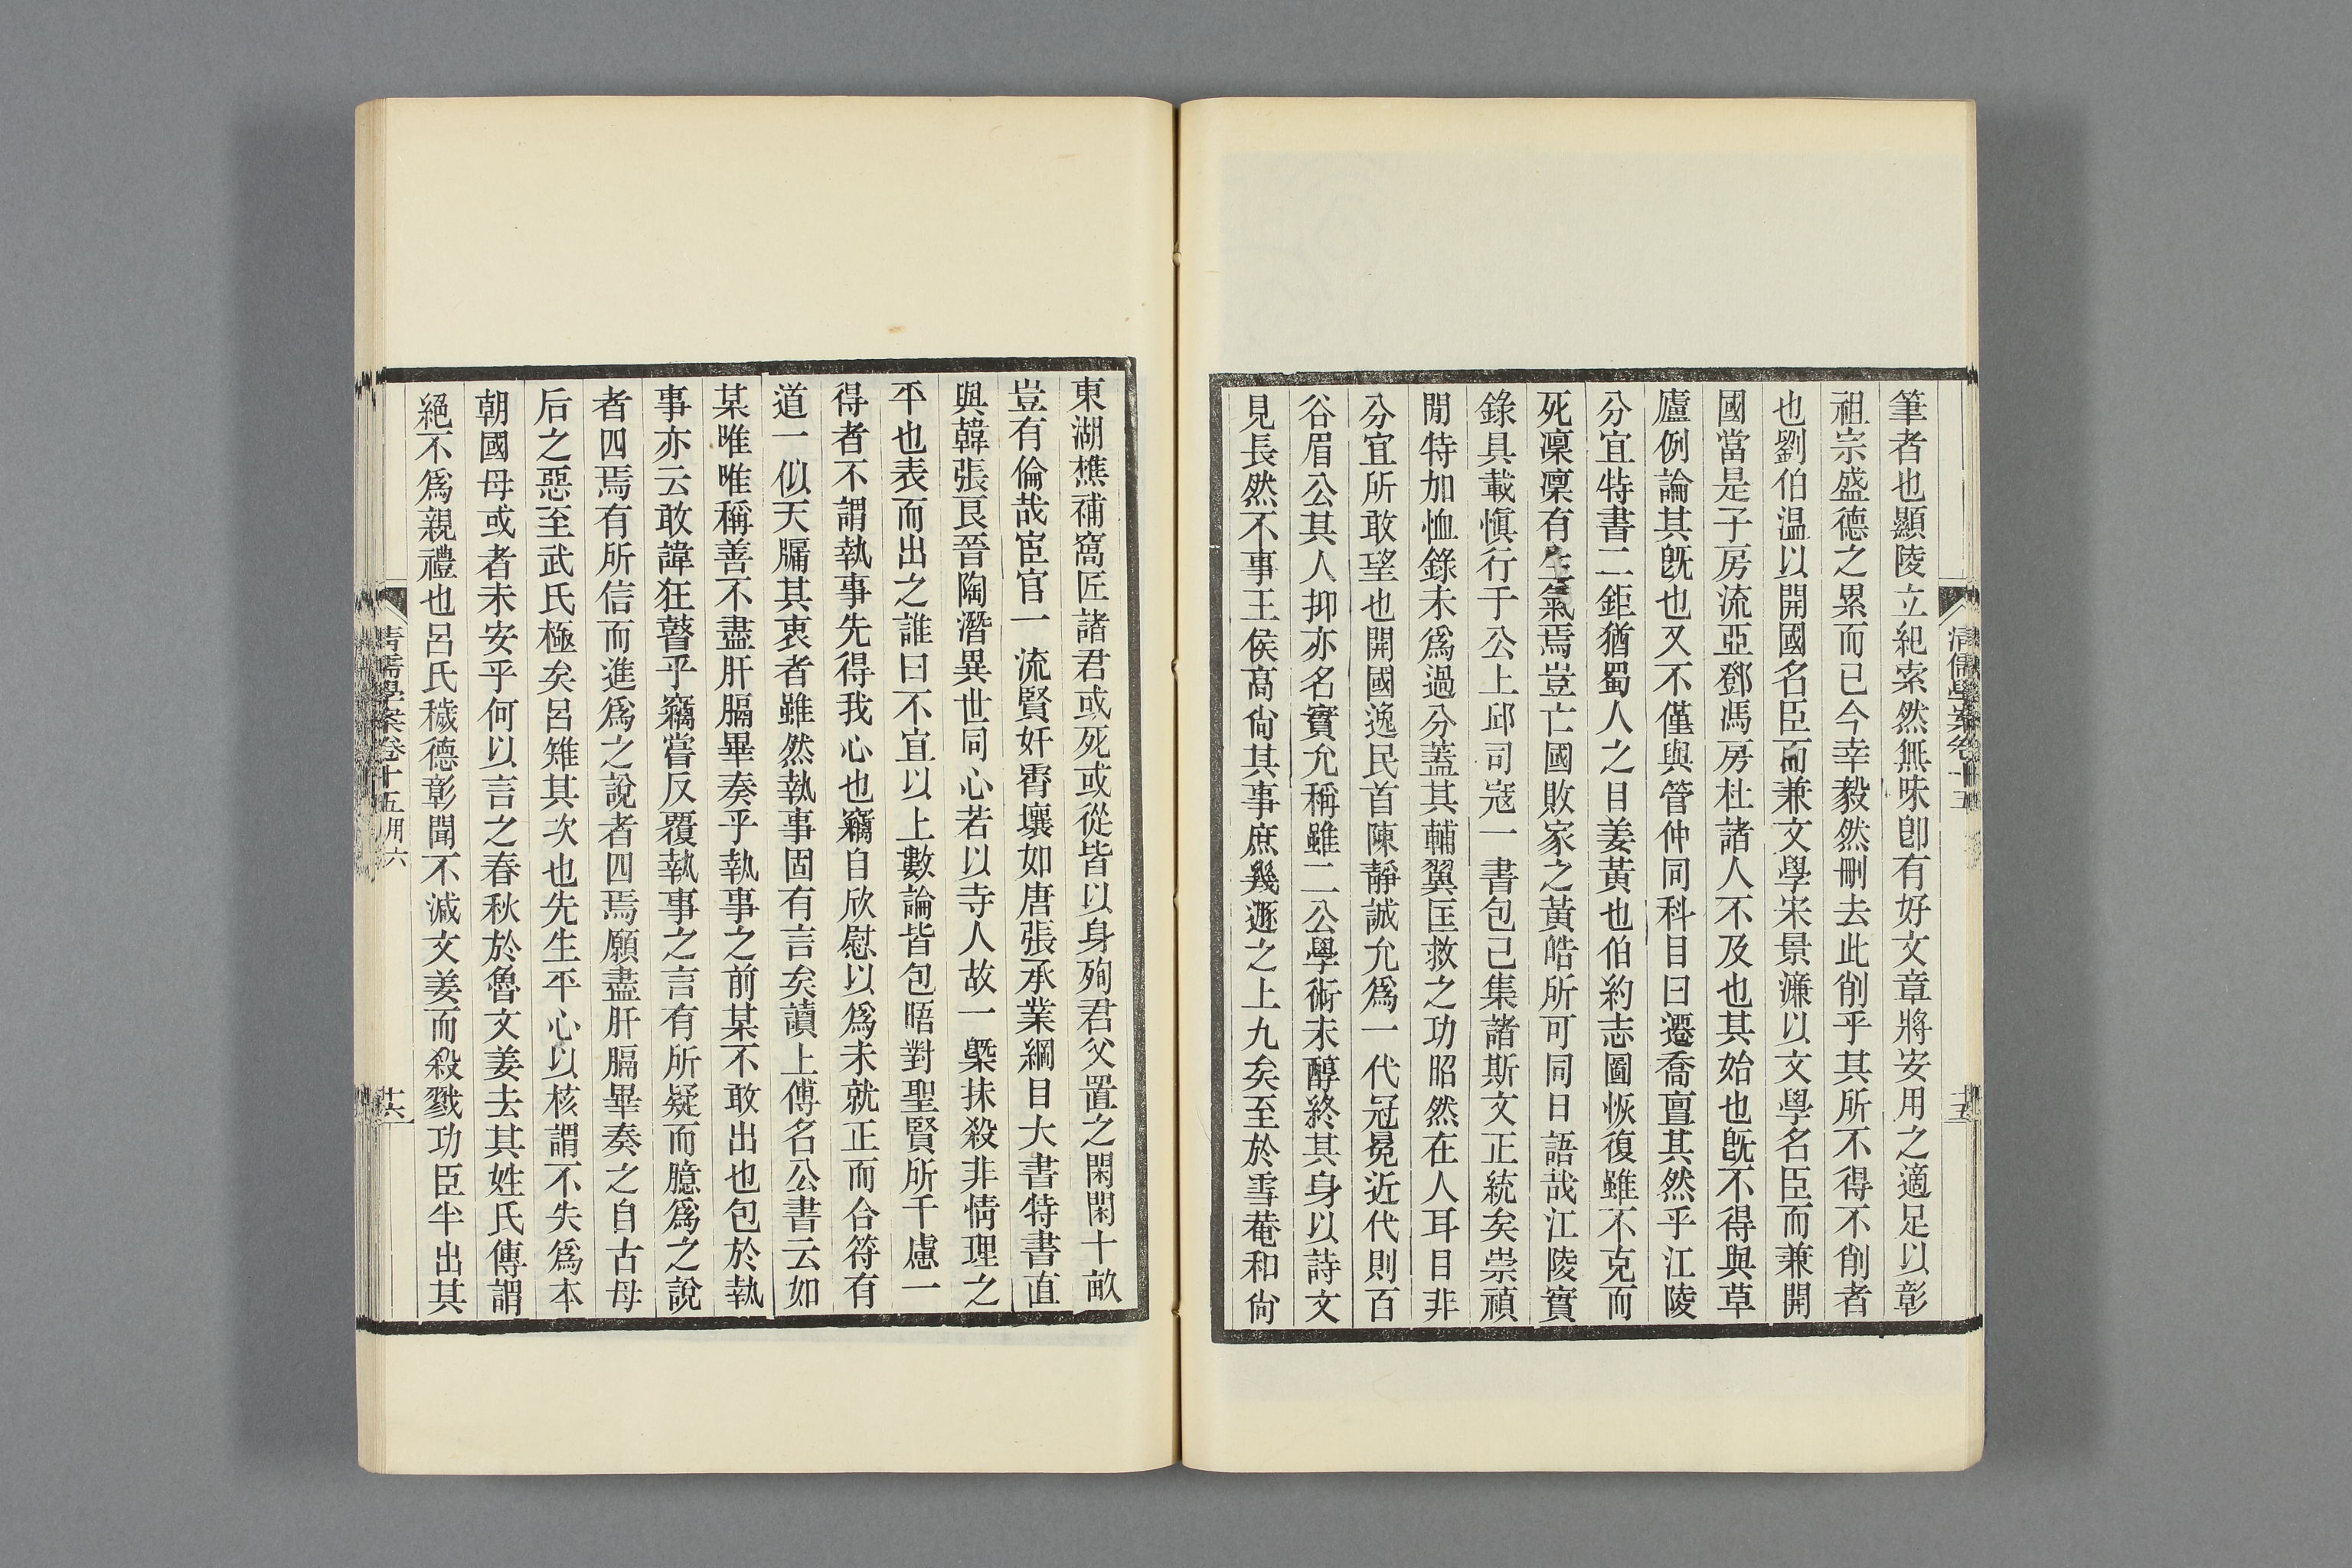 清儒學案卷十五
十五
筆者也顯陵立紀索然無味卽有好文章將安用之適足以彰
祖宗盛德之累而已今幸毅然刪去此削乎其所不得不削者
也劉伯温以開國名臣而兼文學宋景濂以文學名臣而兼開
國當是子房流亞鄧馮房杜諸人不及也其始也旣不得與草
廬例論其旣也又不僅與管仲同科目曰遷喬亶其然乎江陵
分宜特書二鉅猶蜀人之目姜黃也伯約志圖恢復雖不克而
死凜凜有生氣焉豈亡國敗家之黃皓所可同日語哉江陵實
錄具載愼行于公上邱司寇一書包己集諸斯文正統矣崇禎
閒特加恤錄未爲過分蓋其輔翼匡救之功昭然在人耳目非
分宜所敢望也開國逸民首陳靜誠允爲一代冠冕近代則百
谷眉公其人抑亦名實允稱雖二公學術未醇終其身以詩文
見長然不事王侯高尙其事庶幾遯之上九矣至於雪菴和尙
東湖樵補窩匠諸君或死或從皆以身殉君父置之閑閑十畝
豈有倫哉宦官一流賢奸霄壤如唐張承業綱目大書特書直
與韓張良晉陶潛異世同心若以寺人故一槩抹殺非情理之
平也表而出之誰曰不宜以上數論皆包晤對聖賢所千慮一
得者不謂執事先得我心也竊自欣慰以爲未就正而合符有
道一似天牖其衷者雖然執事固有言矣讀上傅名公書云如
某唯唯稱善不盡肝膈畢奏乎執事之前某不敢出也包於執
事亦云敢諱狂瞽乎竊嘗反覆執事之言有所疑而臆爲之說
者四焉有所信而進爲之說者四焉願盡肝膈畢奏之自古母
后之惡至武氏極矣呂雉其次也先生平心以核謂不失爲本
朝國母或者未安乎何以言之春秋於魯文姜去其姓氏傳謂
絕不爲親禮也呂氏穢德彰聞不減文姜而殺戮功臣半出其
清儒學案卷十五 用六
十六